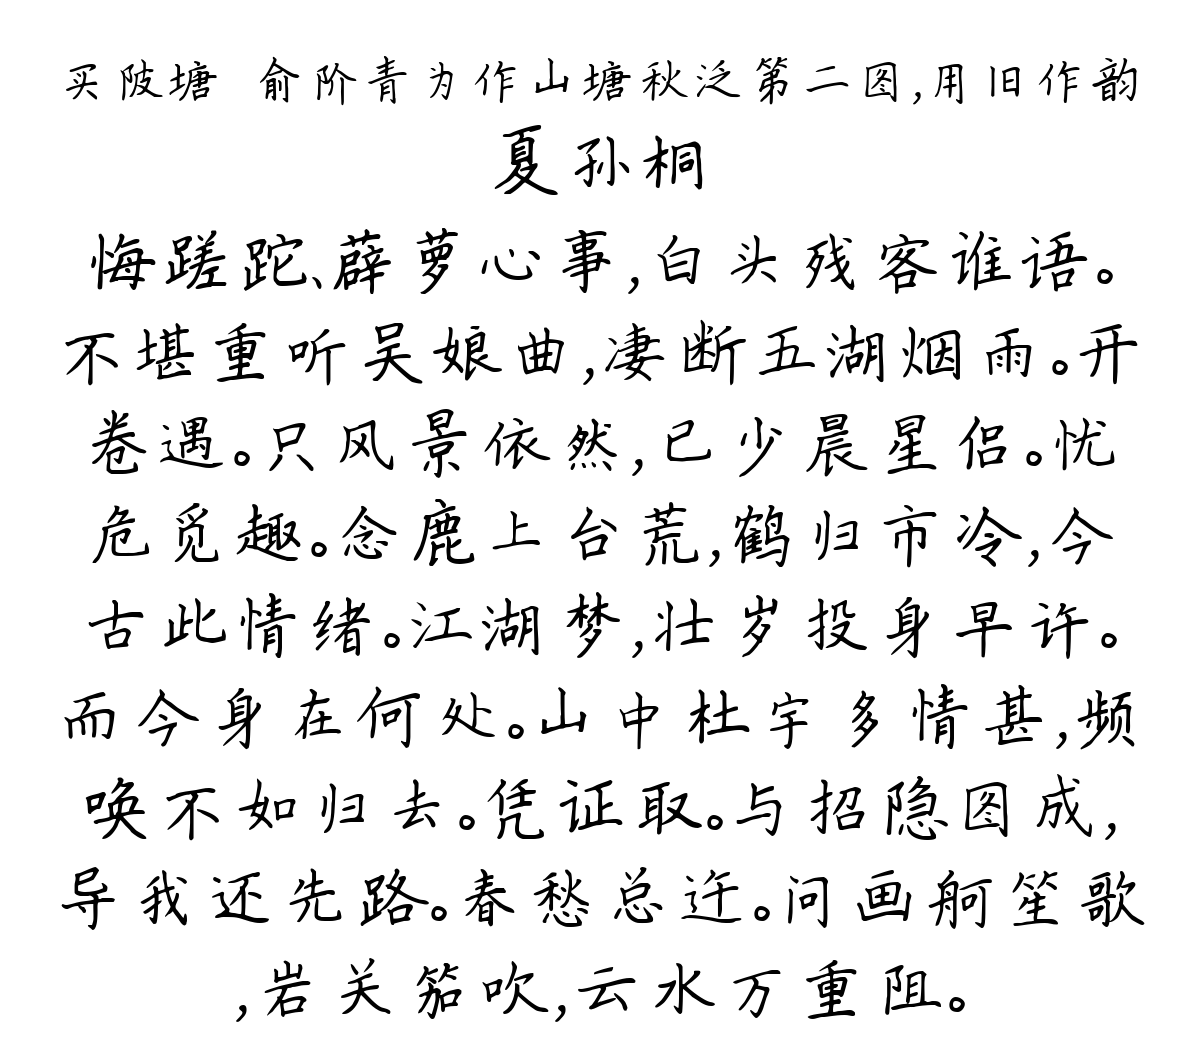 买陂塘 俞阶青为作山塘秋泛第二图,用旧作韵
夏孙桐
悔蹉跎、薜萝心事,白头残客谁语。
不堪重听吴娘曲,凄断五湖烟雨。开
卷遇。只风景依然,已少晨星侣。忧
危觅趣。念鹿上台荒,鹤归市冷,今
古此情绪。江湖梦,壮岁投身早许。
而今身在何处。山中杜宇多情甚,频
唤不如归去。凭证取。与招隐图成,
导我还先路。春愁总迕。问画舸笙歌
,岩关笳吹,云水万重阻。